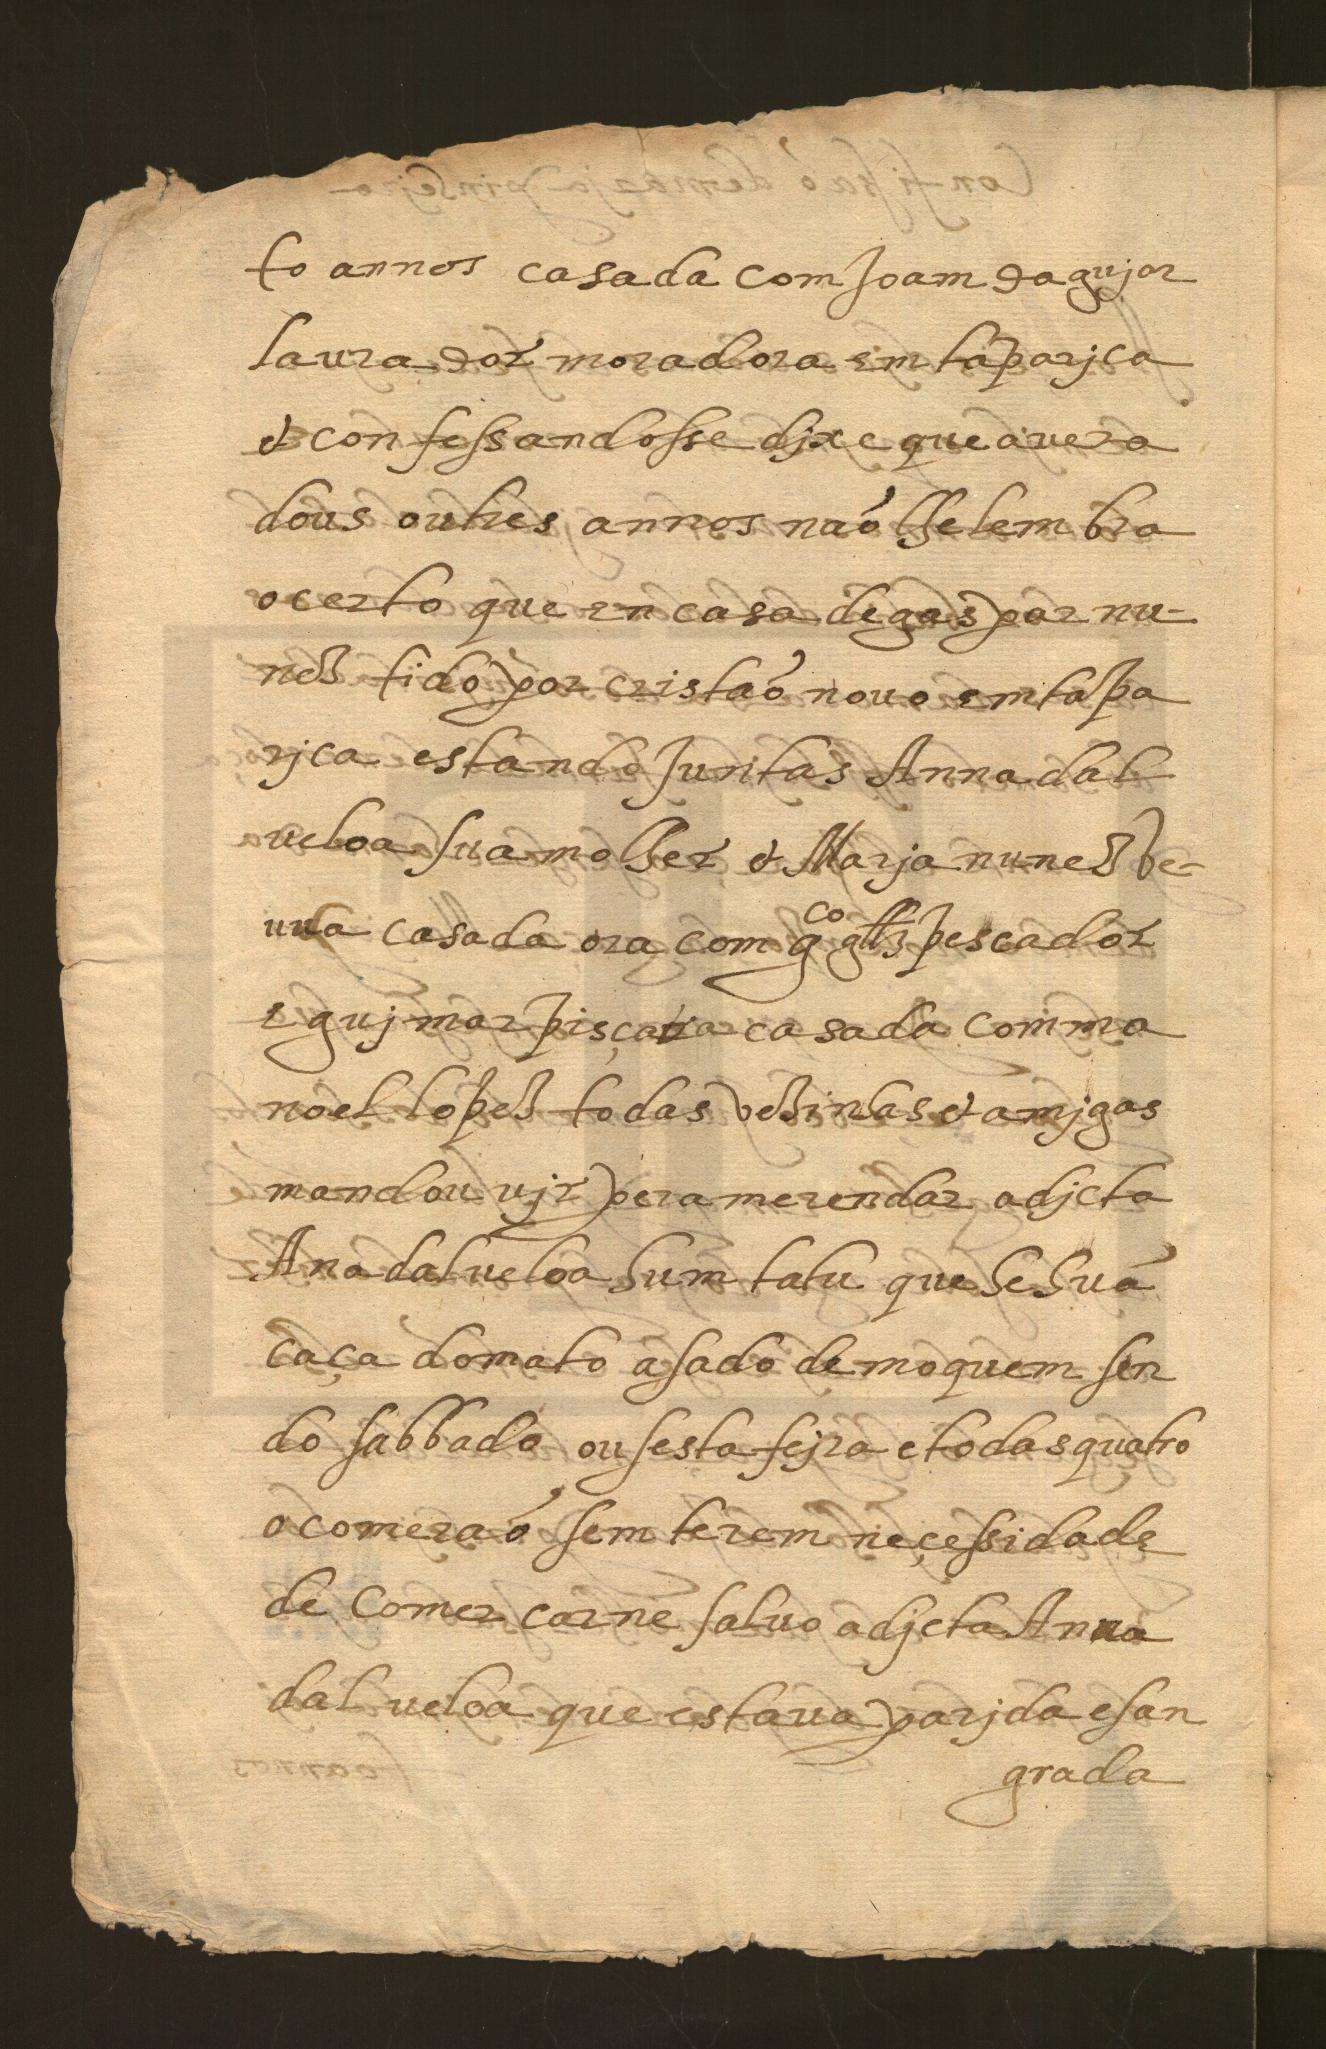 to annos casada com Joam dagujar
laurador moradora em taparjca
& confessandosse djxe que auera
dous ou tres annos naõ sse lembra
o certo que en casa de gaspar nu-
nes tido por cristaõ nouo em tapa
rjca estando Juntas Anna dal
ueloa sua molher & Marja nunes be-
casada ora com g.co gllz pescador
e gujmar pisçara casada com ma
noel lopes todas vesinhas & amjgas
mandou vjr pera merendar a djcta
Ana dalueloa hum tatu que he huã
caça do mato asado de moquem sen
do sabbado ou sesta fejra e todas quatro
o comeraõ sem terem neçessidade
de comer carne saluo a djcta Anna
dalueloa que estaua parjda e san
grada